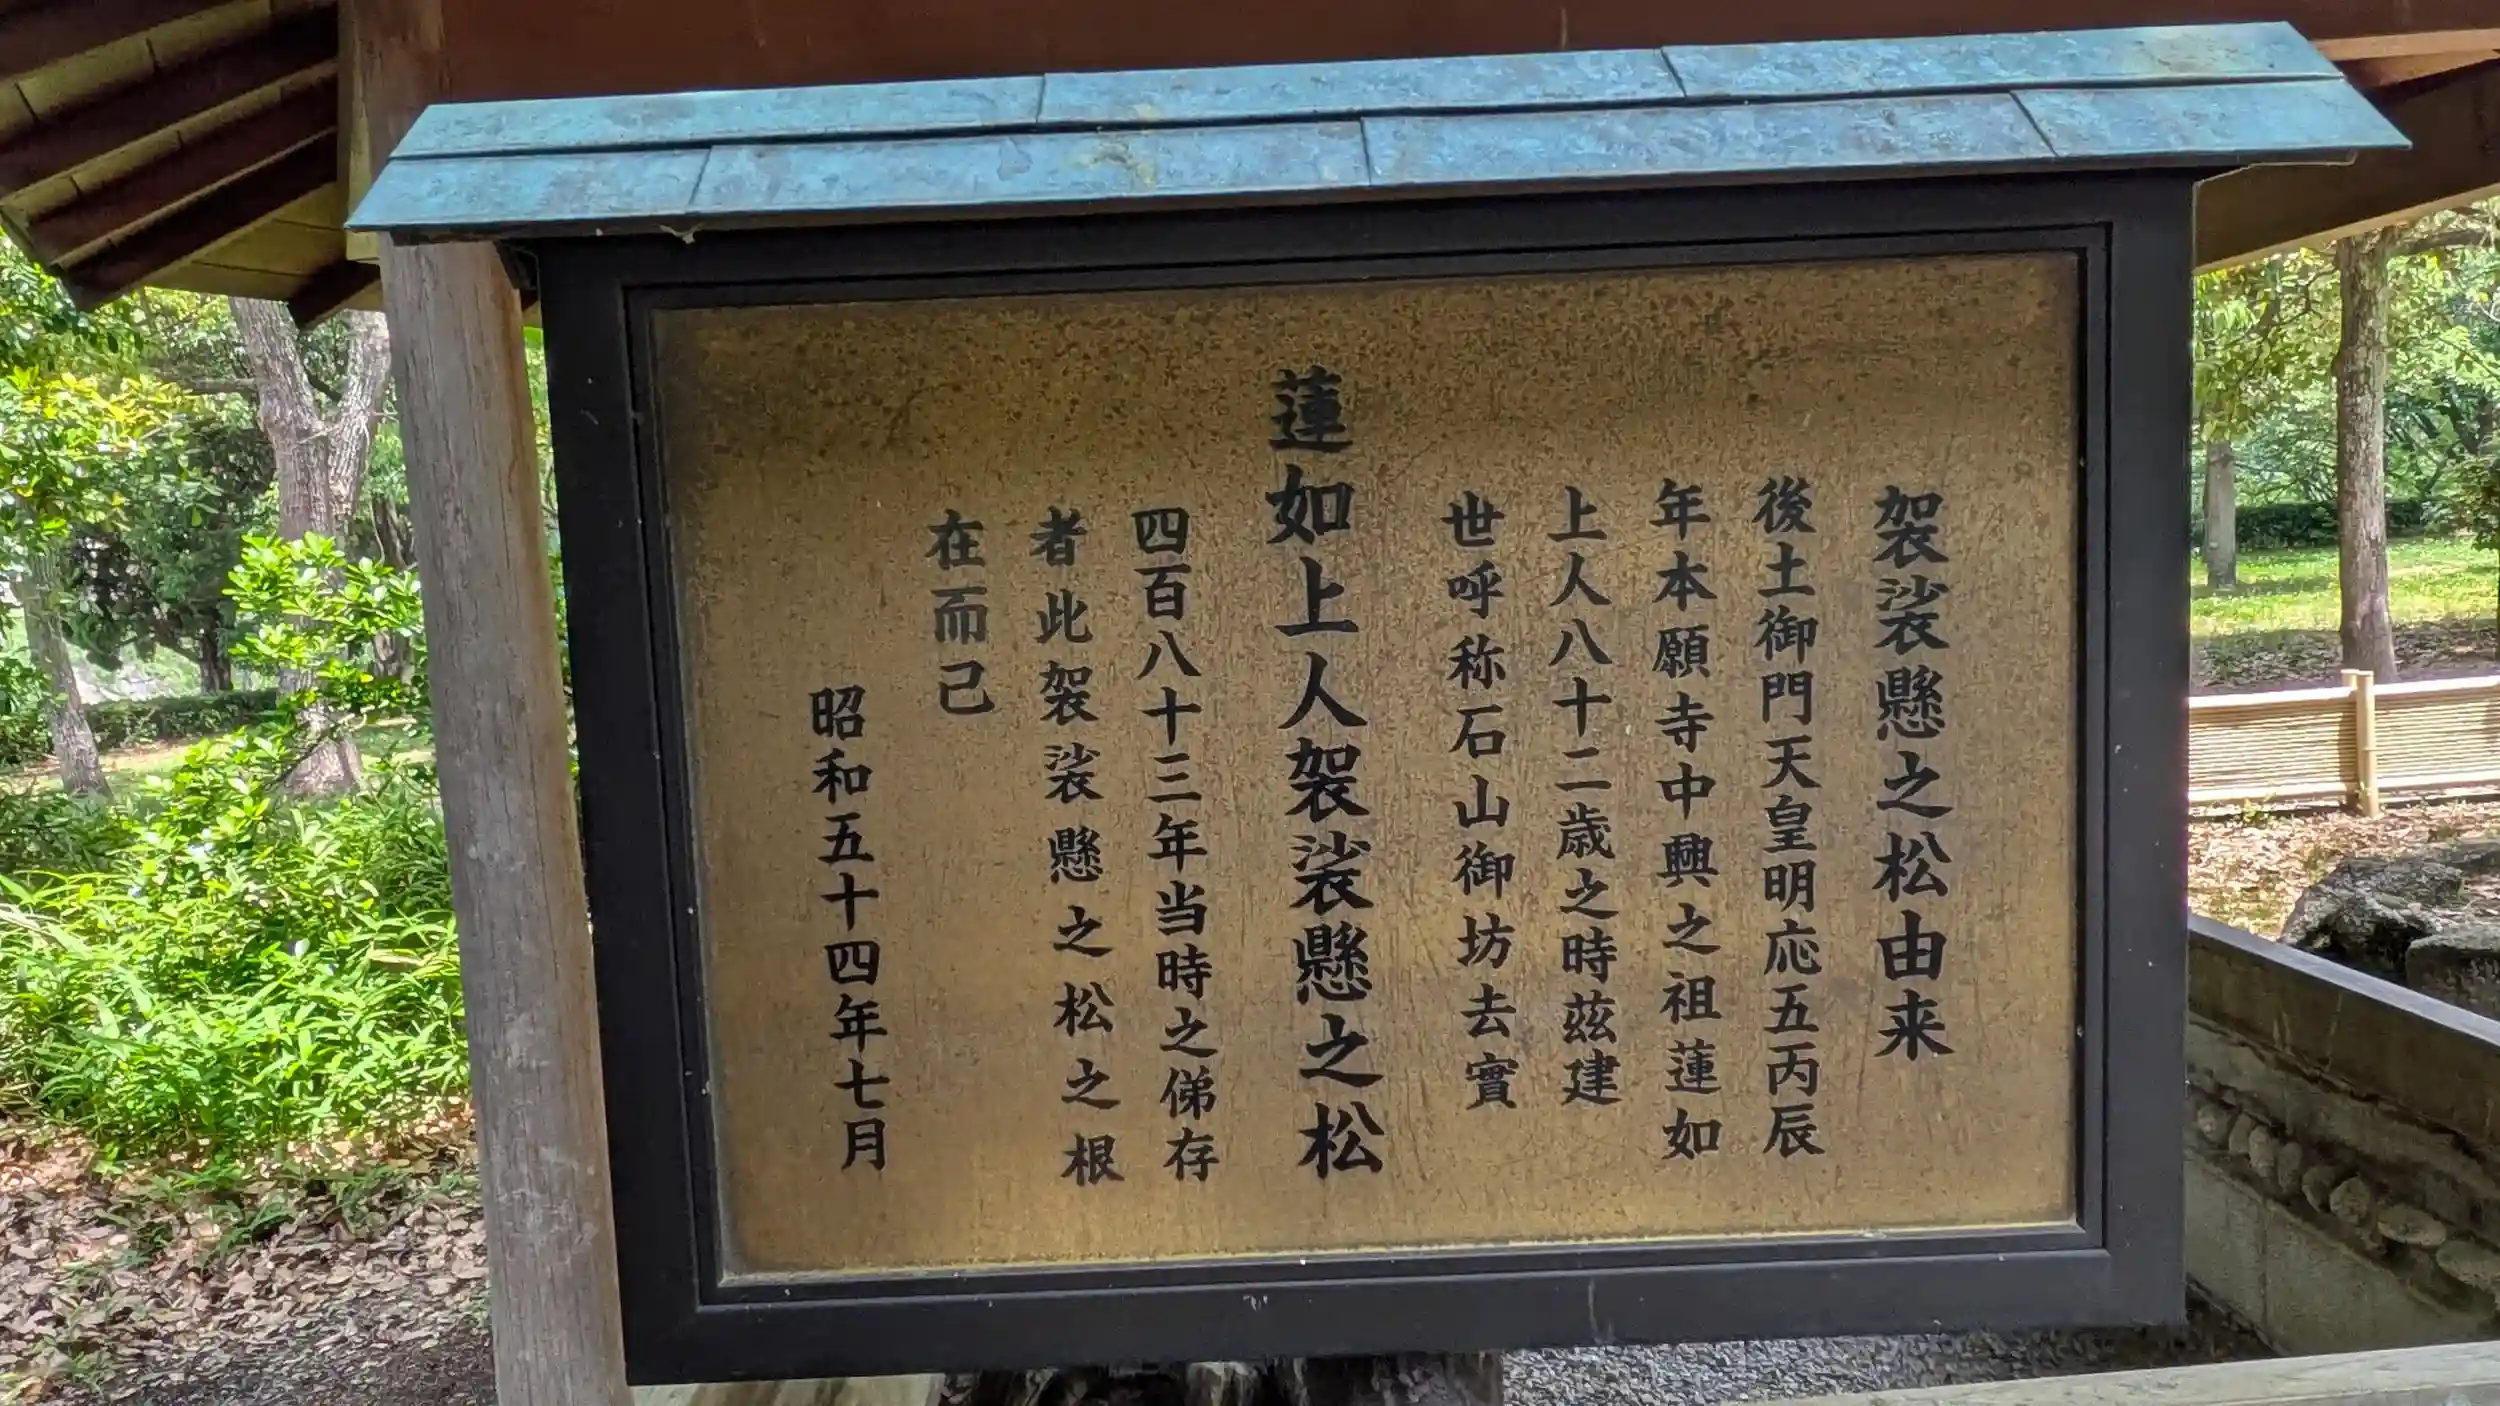 袈裟懸之松由来
後土御門天皇明応五丙辰
年本願寺中興之祖蓮如
上人八十二歳之時茲建
世呼称石山御坊去實
蓮如上人袈裟懸之松
四百八十三年当時之俤存
者此袈裟懸之松之根
在而己
昭和五十四年七月